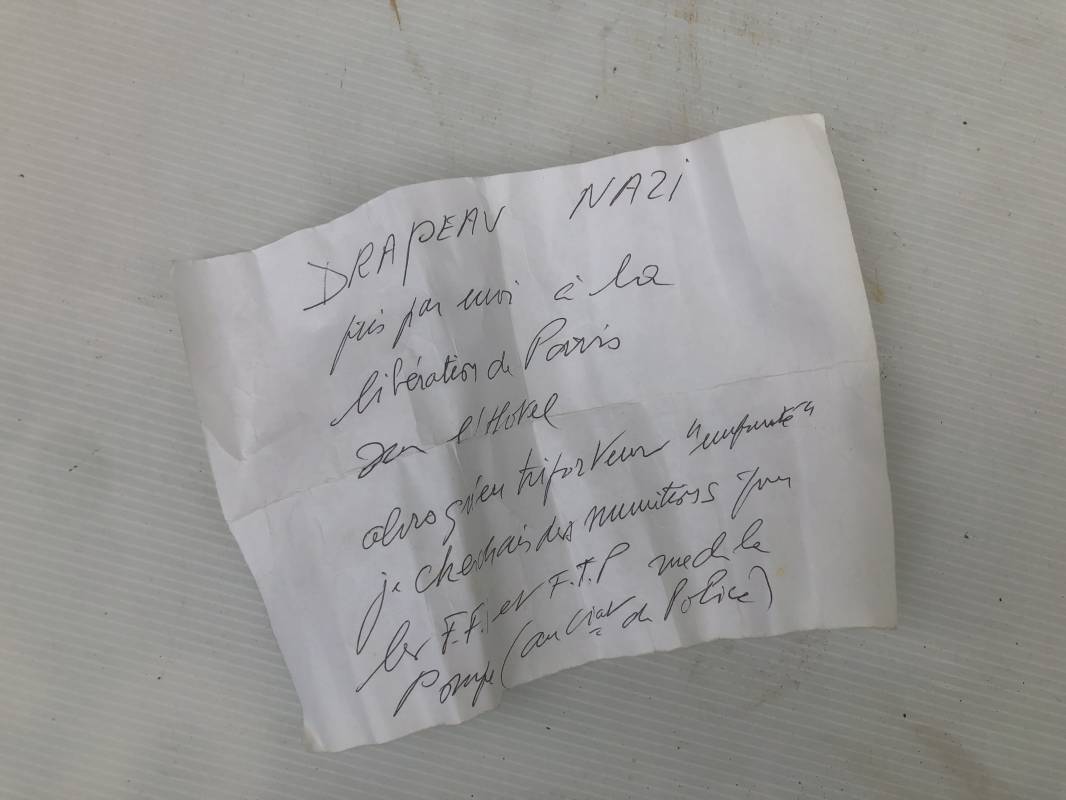 DRAPEAU NAZI
pris par moi à la
libération de Paris
dans l'Hotel
alors qu'en triporteur "emprunté"
je cherchais des munitions pour
les F.F.I et F.T.P rue de la
Pompe (au Ciat de Police)